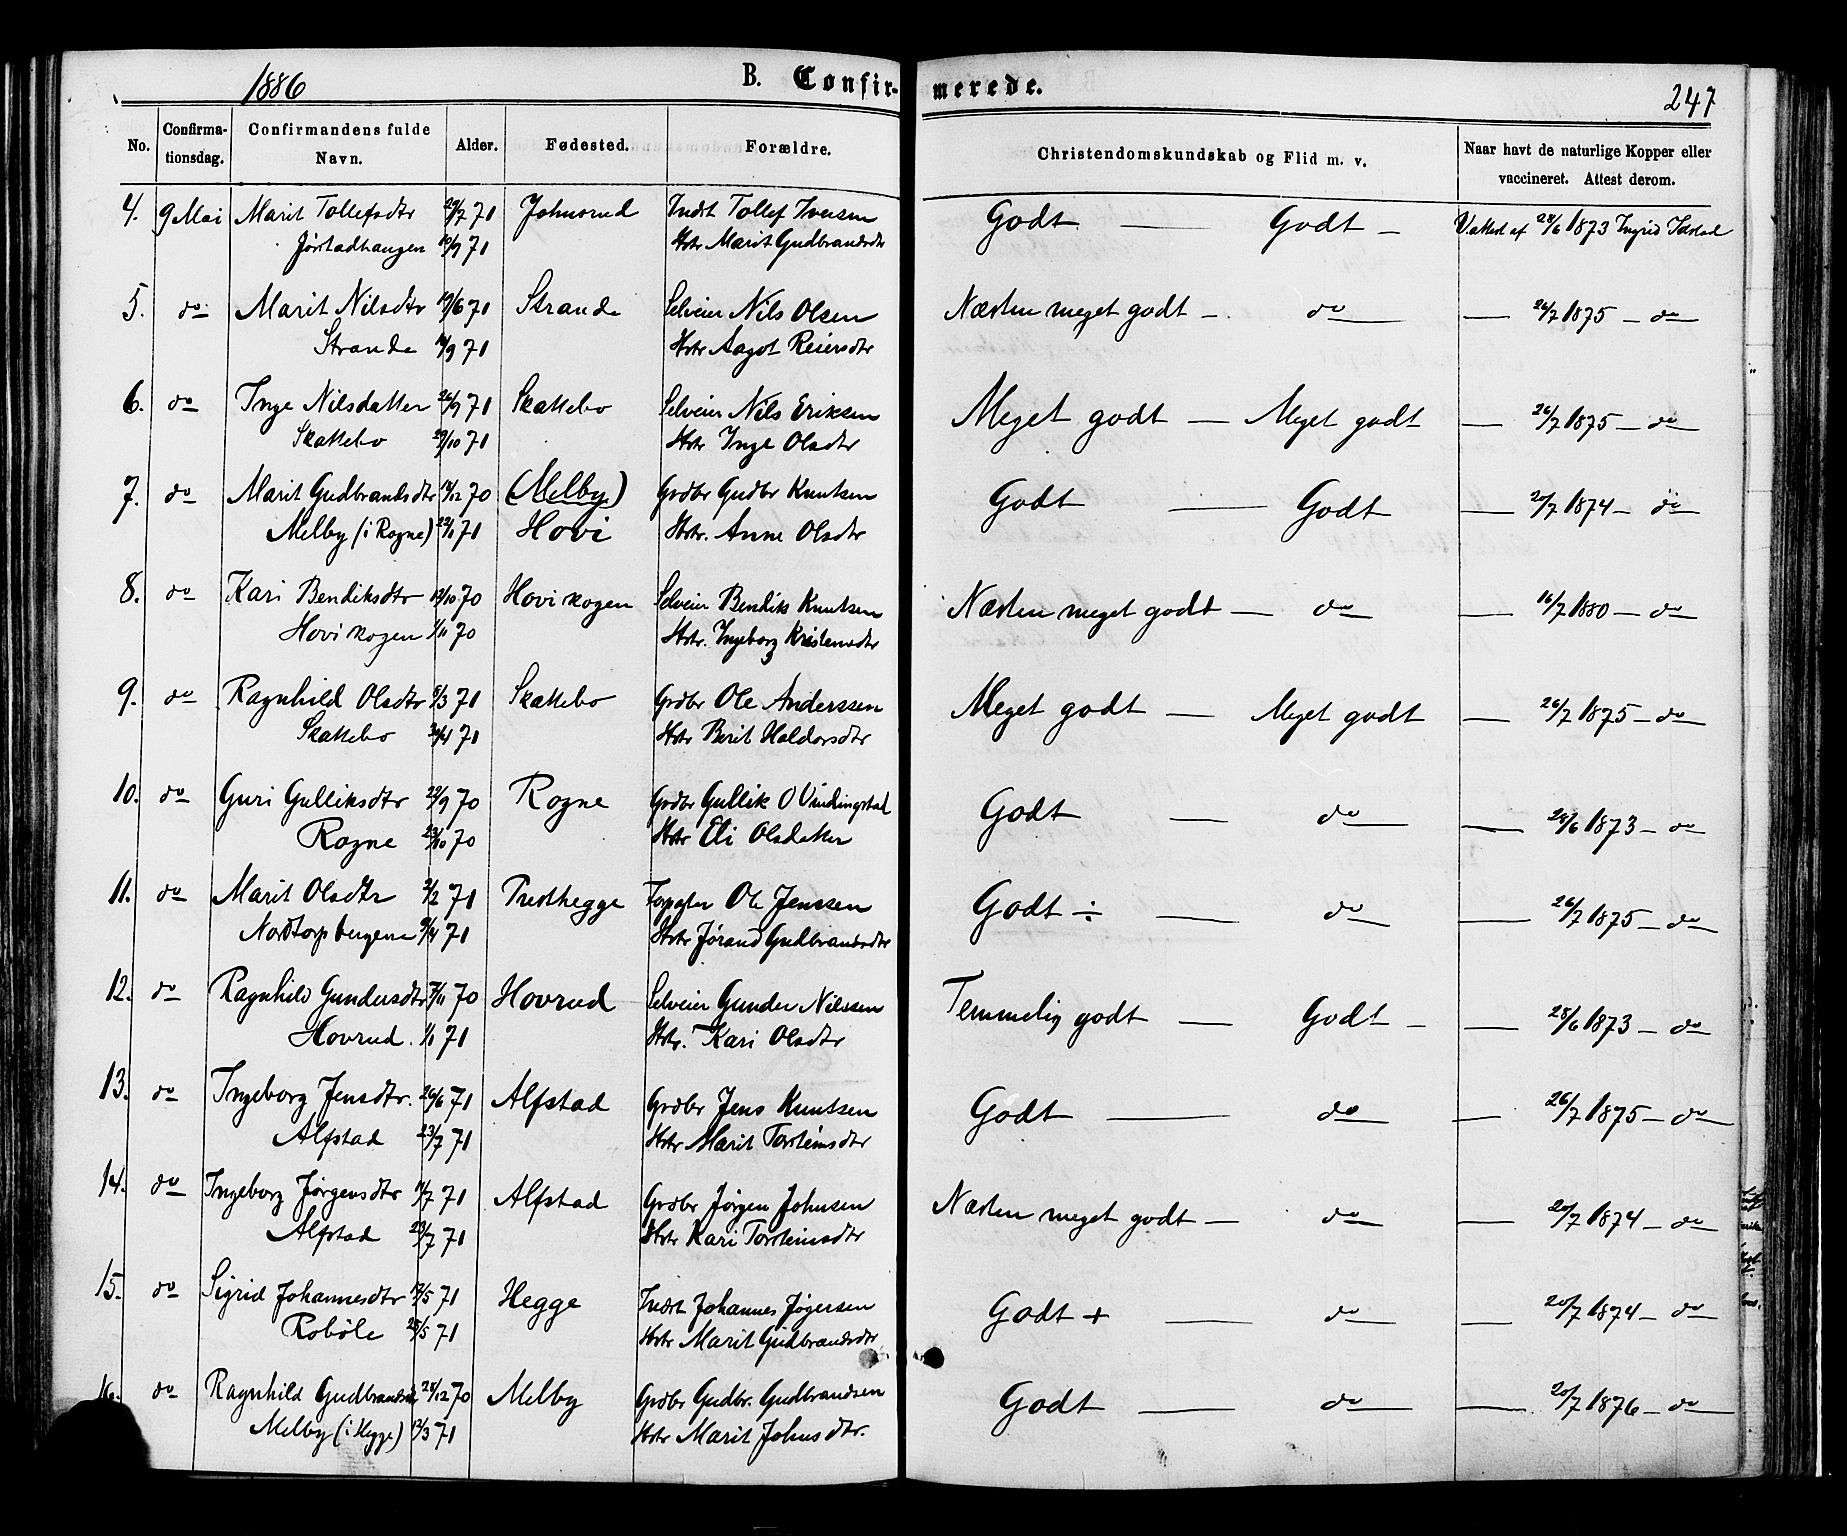 1886 B. Confir- merede. 247
No. Confirma- tionsdag. Confirmandens fulde Navn. Alder. Fødested. Forældre. Christendomskundskab og Flid m. v. Naar havt de naturlige Kopper eller vaccineret. Attest derom.
4. 9 Mai Marit Tollefsdtr 29/7 71 Johnsrud Indst Tollef Iversen Godt — Godt — V attest af 28/6 1873 Ingrid Idstad
Jørstadhaugen 10/9 71 Hstr Marit Gudbrandsdtr
5. do Marit Nilsdtr 19/6 71 Strande Selveier Nils Olsen Næsten meget godt — do — 26/7 1875 — do
Strande /9 71 Hstr Aagot Reiersdtr
6. do Inge Nilsdatter 26/9 71 Skattebo Selveier Nils Eriksen Meget godt — Meget godt — 26/7 1875 — do
Skattebo 29/10 71 Hstr Inge Olsdtr
7. do Marit Gudbrandsdtr 14/12 70 (Melby) Grdbr Gudbr Knutsen Godt — Godt — 20/7 1874 — do
Melby (i Rogne) 22/1 71 Hovi Hstr. Anne Olsdtr
8. do Kari Bendiksdtr 12/10 70 Hoviskogen Selveier Bendik Knutsen Næsten meget godt — do — 16/7 1880 — do
Hoviskogen 1/11 70 Hstr. Ingeborg Kristensdtr
9. do Ragnhild Olsdtr 8/3 71 Skattebo Grdbr Ole Anderssen Meget godt — Meget godt — 26/7 1875 — do
Skattebo 30/4 71 Hstr Berit Haldorsdtr
10. do Guri Gulliksdtr 22/9 70 Rogne Grdbr Gullik O Vindingstad Godt — do — 28/6 1873 — do
Rogne 23/10 70 Hstr Eli Olsdatter
11. do Marit Olsdtr 2/2 71 Presthegge Ole Jenssen Godt ÷ — do — 26/7 1875 — do
Nordtorpbergene 9/4 71 Hstr Jørand Gudbrandsdtr
12. do Ragnhild Gundersdtr 7/11 70 Hovrud Selveier Gunder Nilssen Temmelig godt — Godt — 28/6 1873 — do
Hovrud. 1/1 71 Hstr. Kari Olsdtr
13. do Ingeborg Jensdtr. 26/6 71 Alfstad Grdbr Jens Knutsen Godt — do — 26/7 1875 — do
Alfstad 23/7 71 Hstr Marit Torsteinsdtr
14. do Ingeborg Jørgensdtr 11/7 71 Alfstad Grdbr Jørgen Johnsen Næsten meget godt — do — 20/7 1874 — do
Alfstad 23/7 71 Hstr Kari Torsteinsdtr
15. do Sigrid Johannesdtr 12/5 71 Hegge Indst Johannes Jøgersen Godt + — do — 20/7 1874 — do
Robøle 28/5 71 Hstr Marit Gudbrandsdtr
16. do Ragnhild Gudbrandsd 28/12 70 Melby Grdbr Gudbr. Gudbrandsen Godt — do — 20/7 1876 — do
Melby (i Hegge) 12/3 71 Hstr Marit Johnsdtr.